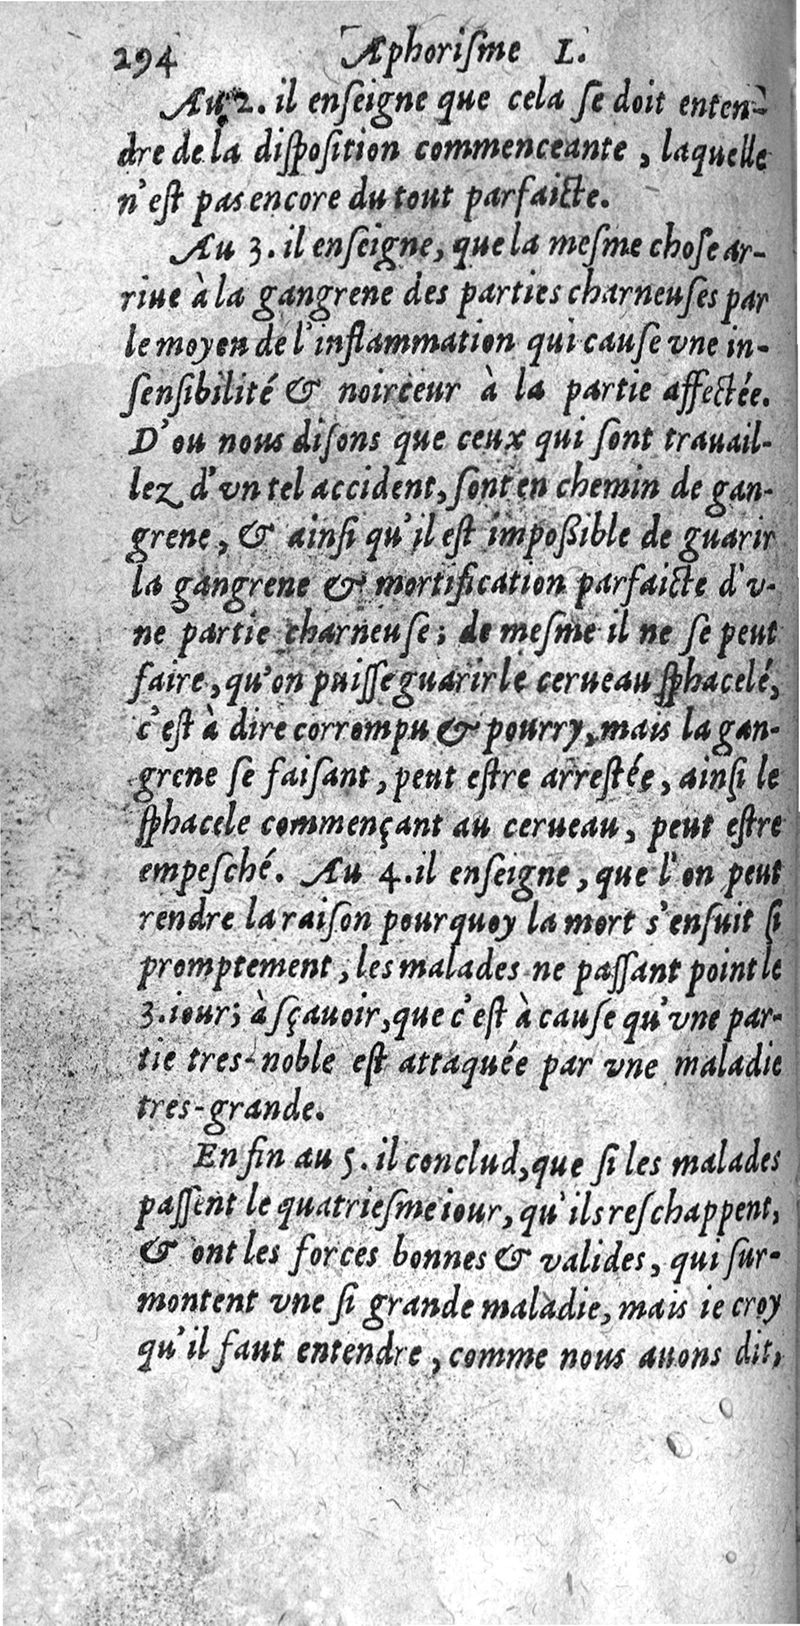 294 Aphoriſme L.
Au 2. il enſeigne que cela ſe doit enten-
dre de la diſpoſition commenceante, laquelle
n'eſt pas encore du tout parfaicte.
Au 3. il enſeigne, que la meſme choſe ar-
riue à la gangrene des parties charneuſes par
le moyen de l'inflammation qui cauſe vne in-
ſenſibilité & noirceur à la partie affectée.
D'ou nous diſons que ceux qui ſont trauail-
lez d'vn tel accident, ſont en chemin de gan-
grene, & ainſi qu'il eſt impoßible de guarir
la gangrene & mortification parfaicte d'v-
ne partie charneuſe; de meſme il ne ſe peut
faire, qu'on puiſſe guarir le cerueau ſphacelé,
c'eſt à dire corrompu & pourry, mais la gan-
grene ſe faiſant, peut eſtre arreſtée, ainſi le
ſphacele commençant au cerueau, peut eſtre
empeſché. Au 4. il enſeigne, que l'on peut
rendre la raiſon pourquoy la mort s'enſuit ſi
promptement, les malades ne paſſant point le
3. iour; à ſçauoir, que c'eſt à cauſe qu'vne par-
tie tres-noble eſt attaquée par vne maladie
tres-grande.
En fin au 5. il conclud, que ſi les malades
paſſent le quatrieſme iour, qu'ils reſchappent,
& ont les forces bonnes & valides, qui ſur-
montent vne ſi grande maladie, mais ie croy
qu'il faut entendre, comme nous auons dit,